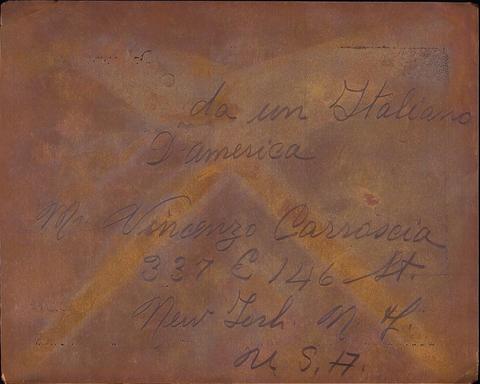 da un Italiano
D'america
Mr Vincenzo Carroscia
337 E 146 St.
New York N.Y.
U.S.A.